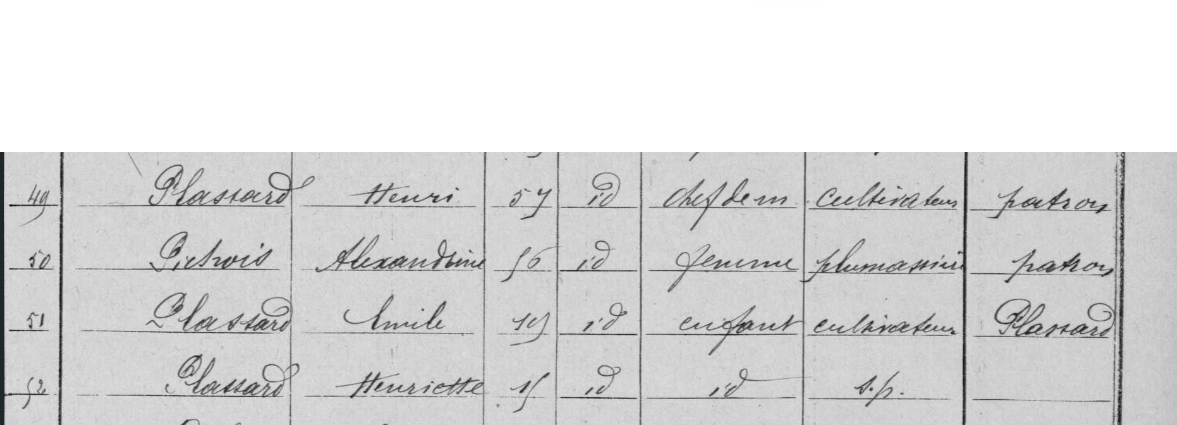 49 Plassard Henri 57 id chef de m cultivateur patron
50 Alexandrine 56 id femme plumassière patron
51 Plassard Emile 19 id enfant cultivateur Plassard
52 Plassard Henriette 15 id id s.p.